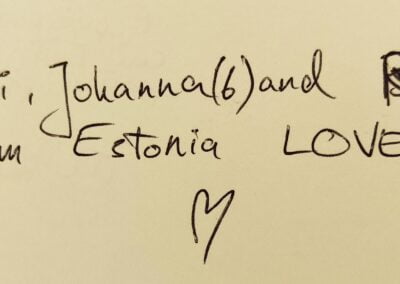 i, Johanna(6) and
m Estonia LOVE